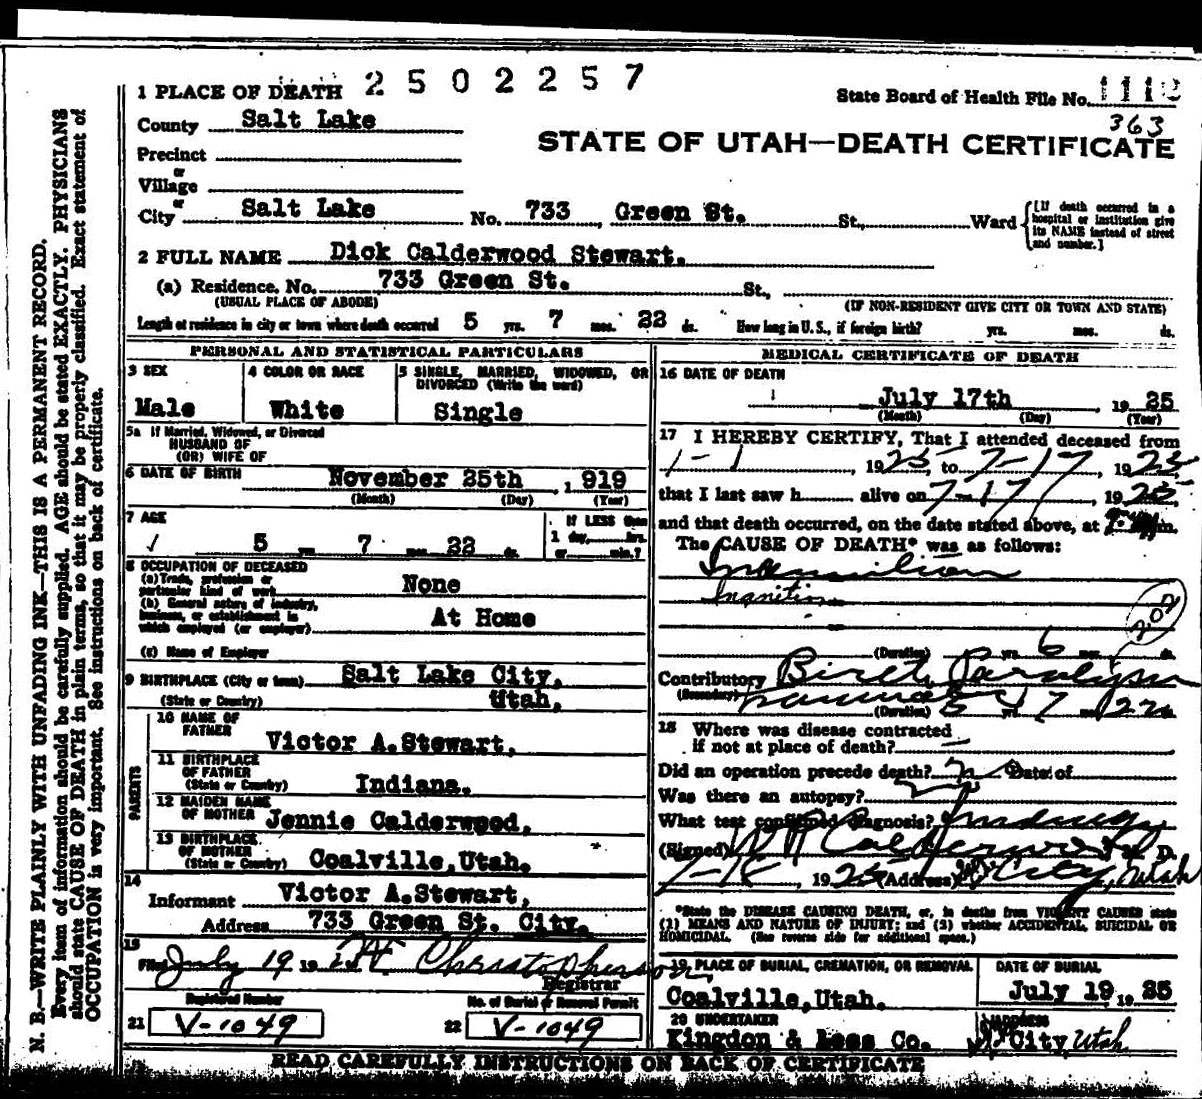 2502257
1 PLACE OF DEATH
State Board of Health File No.
363
County Salt Lake
STATE OF UTAH—DEATH CERTIFICATE
Precinct
or
Village
or
City Salt Lake No. 733 Green St. St., Ward
[If death occurred in a hospital or institution give its NAME instead of street and number.]
2 FULL NAME Dick Calderwood Stewart.
(a) Residence. No. 733 Green St. St.,
(USUAL PLACE OF ABODE) (IF NON-RESIDENT GIVE CITY OR TOWN AND STATE)
Length of residence in city or town where death occurred 5 yrs. 7 mos. 22 ds. How long in U.S., if foreign birth? yrs. mos. ds.
PERSONAL AND STATISTICAL PARTICULARS
3 SEX 4 COLOR OR RACE 5 SINGLE, MARRIED, WIDOWED, OR DIVORCED (Write the word)
Male White Single
5a If Married, Widowed, or Divorced
HUSBAND OF
(OR) WIFE OF
6 DATE OF BIRTH November 25th , 1919
(Month) (Day) (Year)
7 AGE If LESS than
5 yrs 7 mos. 22 ds. 1 day, hrs.
or min.?
8 OCCUPATION OF DECEASED
(a) Trade, profession or
particular kind of work None
(b) General nature of industry,
business, or establishment in
which employed (or employer) At Home
(c) Name of Employer
9 BIRTHPLACE (City or town) Salt Lake City,
(State or Country) Utah.
PARENTS
10 NAME OF
FATHER Victor A.Stewart,
11 BIRTHPLACE
OF FATHER
(State or Country) Indiana.
12 MAIDEN NAME
OF MOTHER Jennie Calderwood,
13 BIRTHPLACE
OF MOTHER
(State or Country) Coalville,Utah.
14
Informant Victor A.Stewart,
Address 733 Green St. City.
15
Filed July 19 19 Christopherson
Registrar
Registered Number No. of Burial or Removal Permit
21 V-1049 22 V-1049
MEDICAL CERTIFICATE OF DEATH
16 DATE OF DEATH
July 17th , 19 25
(Month) (Day) (Year)
17 I HEREBY CERTIFY, That I attended deceased from
1-1 , 1925, to 7-17, 1925
that I last saw h alive on 7-17, 1925
and that death occurred, on the date stated above, at m.
The CAUSE OF DEATH* was as follows:
Inanition
Inanition
202
(Duration) yrs. 6 mos. ds.
Contributory Birth Paralysis
(Secondary)
(Duration) 5 yrs. 7 mos. 22 ds.
18 Where was disease contracted
if not at place of death? —
Did an operation precede death? no Date of
Was there an autopsy? no
What test confirmed diagnosis?
(Signed) Calderwood M. D.
7-18, 1925 (Address) City, Utah
*State the DISEASE CAUSING DEATH, or, in deaths from VIOLENT CAUSES state
(1) MEANS AND NATURE OF INJURY; and (2) whether ACCIDENTAL, SUICIDAL OR
HOMICIDAL. (See reverse side for additional space.)
19 PLACE OF BURIAL, CREMATION, OR REMOVAL DATE OF BURIAL
Coalville,Utah. July 19 19 25
20 UNDERTAKER ADDRESS
Kingdon & Lees Co. City Utah
READ CAREFULLY INSTRUCTIONS ON BACK OF CERTIFICATE
N. B.—WRITE PLAINLY WITH UNFADING INK—THIS IS A PERMANENT RECORD.
Every item of information should be carefully supplied. AGE should be stated EXACTLY. PHYSICIANS
should state CAUSE OF DEATH in plain terms, so that it may be properly classified. Exact statement of
OCCUPATION is very important. See instructions on back of certificate.